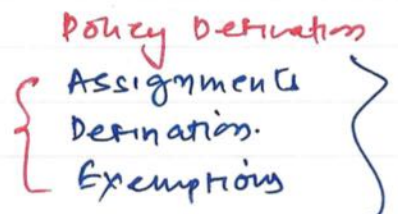 Policy Derivation
Assignments
Defination.
Exemptions